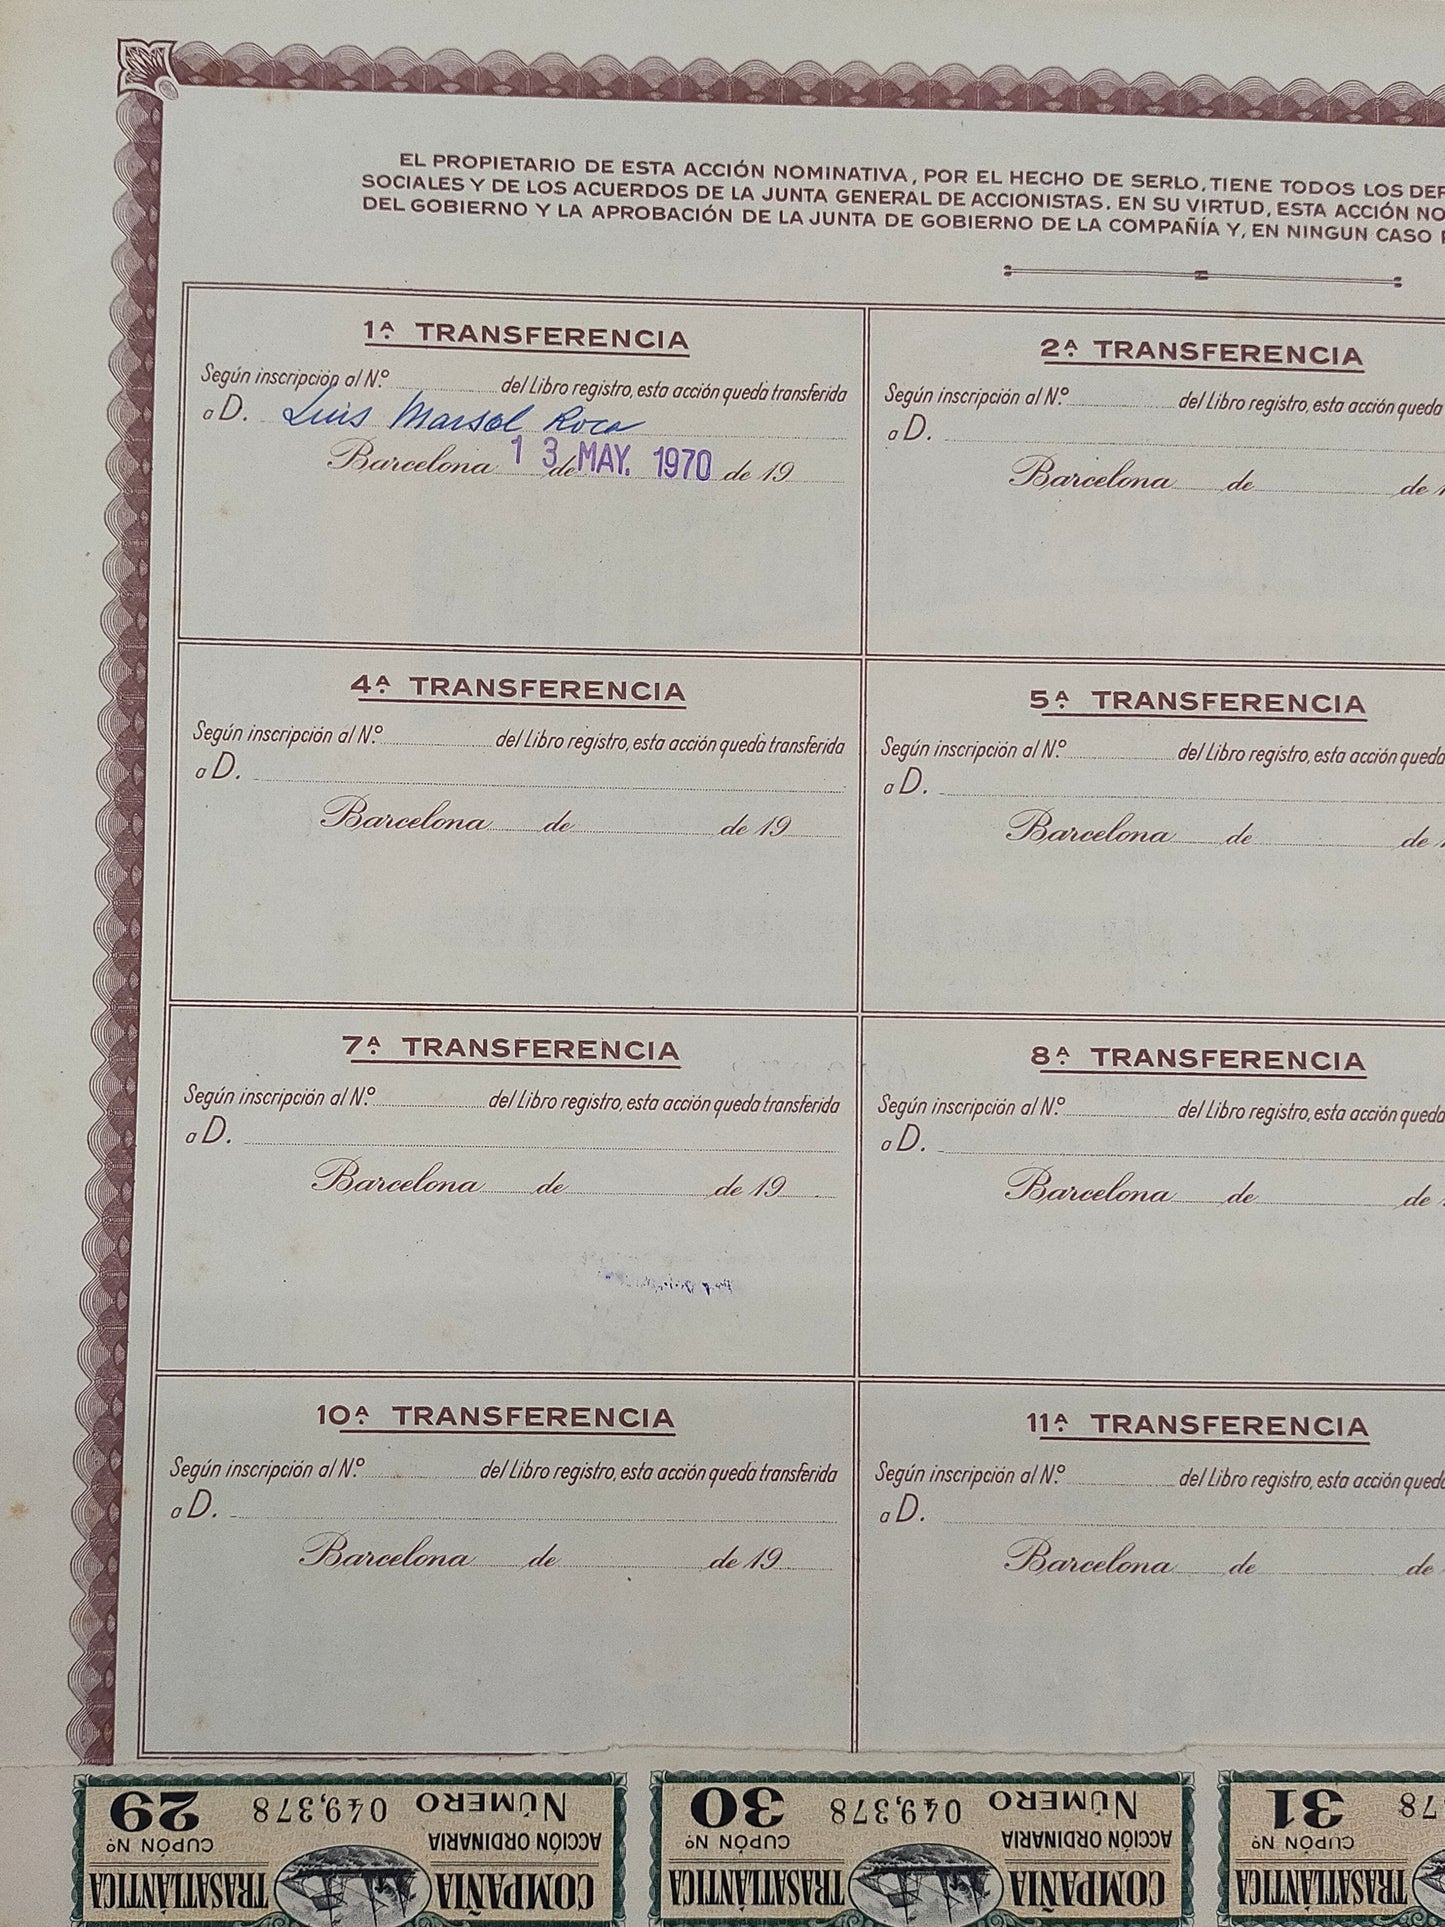 EL PROPIETARIO DE ESTA ACCIÓN NOMINATIVA, POR EL HECHO DE SERLO, TIENE TODOS LOS
SOCIALES Y DE LOS ACUERDOS DE LA JUNTA GENERAL DE ACCIONISTAS. EN SU VIRTUD, ESTA ACCIÓN
DEL GOBIERNO Y LA APROBACIÓN DE LA JUNTA DE GOBIERNO DE LA COMPAÑÍA Y, EN NINGUN CASO
1ª TRANSFERENCIA
Según inscripción al N.º del Libro registro, esta acción queda transferida
a D. Luis Marsol Roca
Barcelona 13 de MAY. 1970 de 19
2ª TRANSFERENCIA
Según inscripción al N.º del Libro registro, esta acción queda
a D.
Barcelona de de
4ª TRANSFERENCIA
Según inscripción al N.º del Libro registro, esta acción queda transferida
a D.
Barcelona de de 19
5ª TRANSFERENCIA
Según inscripción al N.º del Libro registro, esta acción queda
a D.
Barcelona de de
7ª TRANSFERENCIA
Según inscripción al N.º del Libro registro, esta acción queda transferida
a D.
Barcelona de de 19
8ª TRANSFERENCIA
Según inscripción al N.º del Libro registro, esta acción queda
a D.
Barcelona de de
10ª TRANSFERENCIA
Según inscripción al N.º del Libro registro, esta acción queda transferida
a D.
Barcelona de de 19
11ª TRANSFERENCIA
Según inscripción al N.º del Libro registro, esta acción queda
a D.
Barcelona de de
COMPAÑIA TRASATLÁNTICA
ACCIÓN ORDINARIA CUPÓN Nº
NÚMERO 049,378 29
COMPAÑIA TRASATLÁNTICA
ACCIÓN ORDINARIA CUPÓN Nº
NÚMERO 049,378 30
TRASATLÁNTICA
CUPÓN Nº
78 31